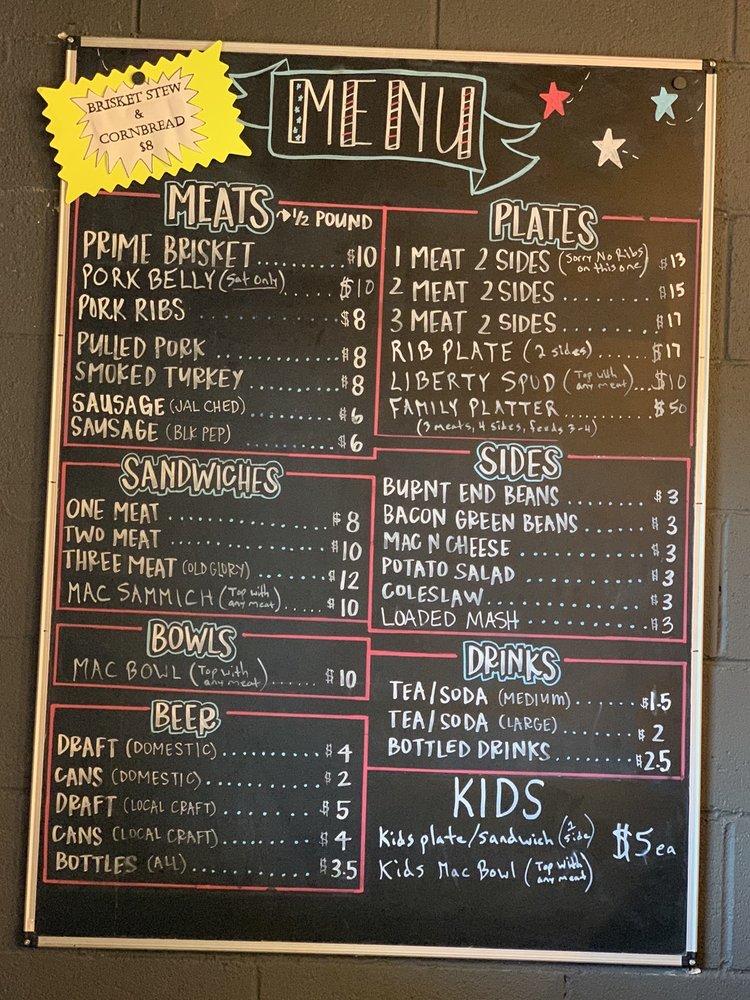 BRISKET STEW
&
CORNBREAD
$8
MENU
MEATS → 1/2 POUND
PRIME BRISKET.......... $10
PORK BELLY (Sat Only) ..... $10
PORK RIBS .......... $8
PULLED PORK .......... $8
SMOKED TURKEY .......... $8
SAUSAGE (JAL CHED) ...... $6
SAUSAGE (BLK PEP) ....... $6
SANDWICHES
ONE MEAT .......... $8
TWO MEAT .......... $10
THREE MEAT (OLD GLORY) ....... $12
MAC SAMMICH (Top with any meat) ..... $10
BOWLS
MAC BOWL (Top with any meat) ...... $10
BEER
DRAFT (DOMESTIC) .......... $4
CANS (DOMESTIC) .......... $2
DRAFT (LOCAL CRAFT) ........ $5
CANS (LOCAL CRAFT) ........ $4
BOTTLES (ALL) .......... $3.5
PLATES
1 MEAT 2 SIDES (Sorry No Ribs on this one) $13
2 MEAT 2 SIDES ........ $15
3 MEAT 2 SIDES ........ $17
RIB PLATE (2 sides) ...... $17
LIBERTY SPUD (Top with any meat) ... $10
FAMILY PLATTER .......... $50
(3 meats, 4 sides, feeds 3-4)
SIDES
BURNT END BEANS ........ $3
BACON GREEN BEANS ....... $3
MAC N CHEESE .......... $3
POTATO SALAD .......... $3
COLESLAW .......... $3
LOADED MASH .......... $3
DRINKS
TEA/SODA (MEDIUM) ....... $1.5
TEA/SODA (LARGE) ....... $2
BOTTLED DRINKS .......... $2.5
KIDS
Kids plate/sandwich (1 side) $5 ea
Kids Mac Bowl (Top with any meat)